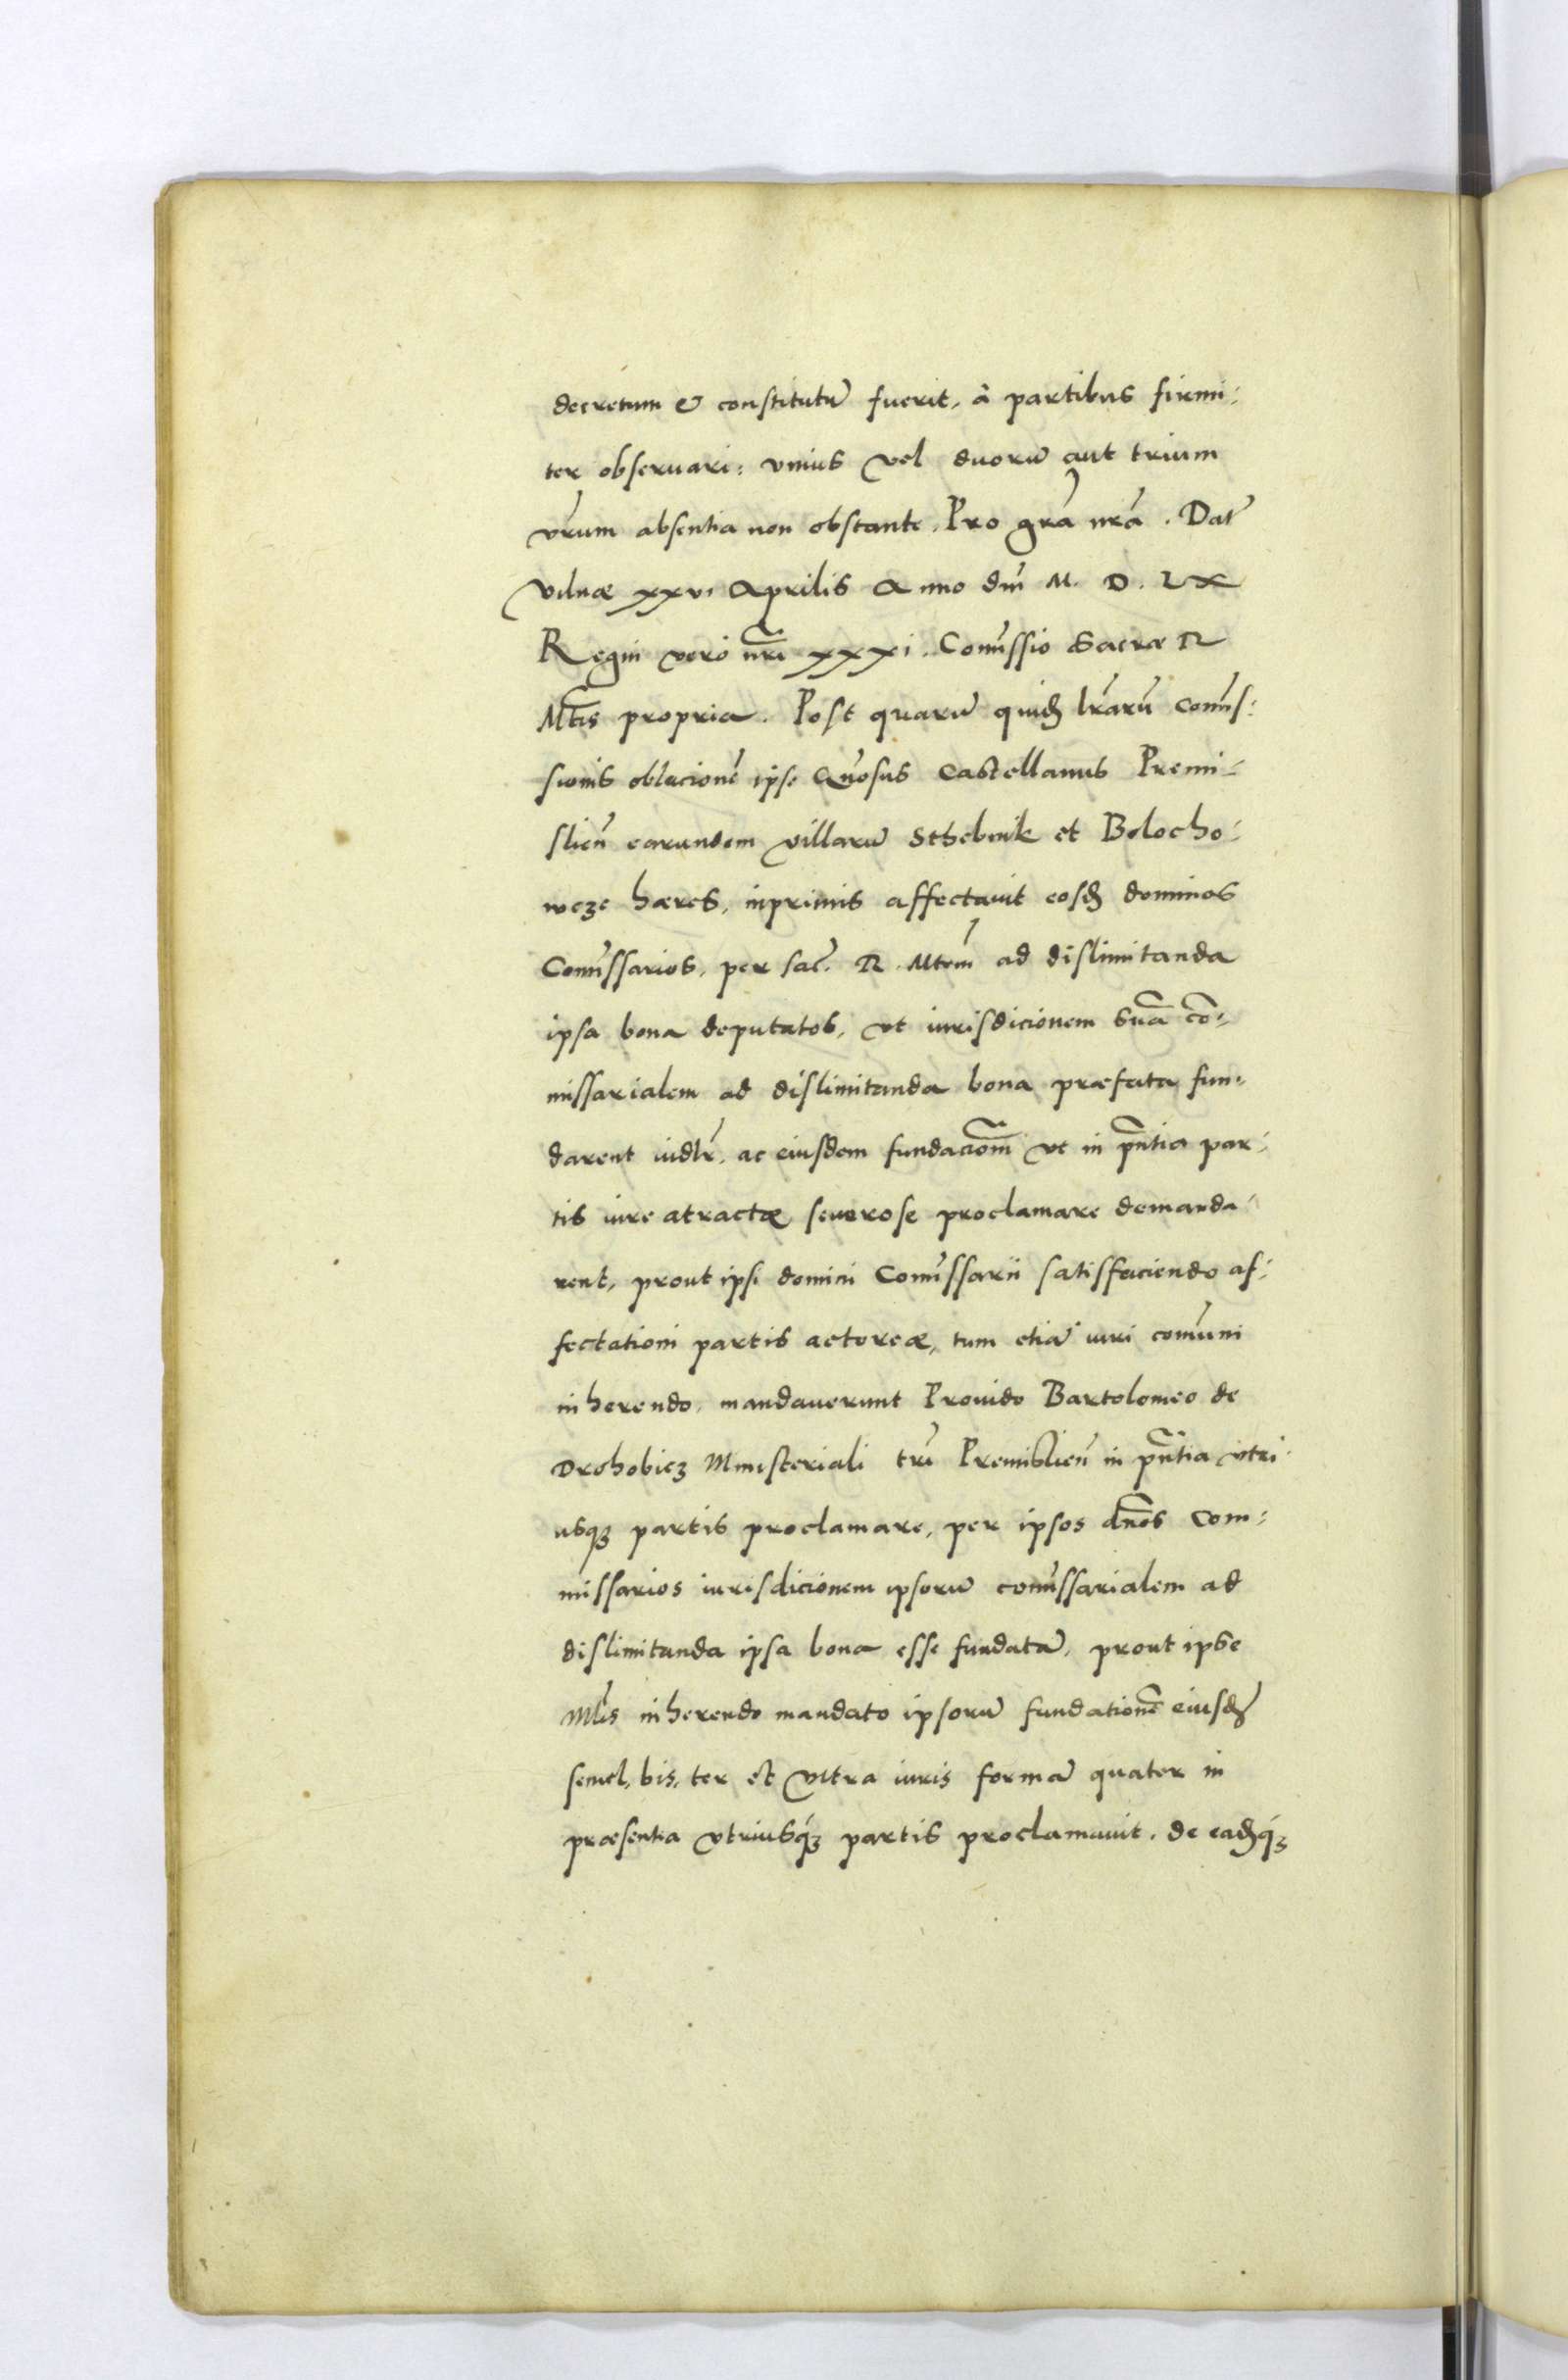 decretum & constitutū fuerit, à partibus firmi-
ter obseruari: vnius vel duorū aut trium
vr̄um absentia non obstante. Pro grā nr̄a. Dat̄
Vilnæ xxvi Aprilis Anno dn̄i M. D. LX
Regni vero nr̄i xxxi. Comı̄ssio Sacræ R
Mt̄is propria. Post quarū quidē lr̄arū Comı̄s-
sionis oblacionē ipse Gn̄osus Castellanus Premi-
slień earundem villarū Sthebnik et Bolocho-
wcze hæres, inprimis affectauit eosdē dominos
Comı̄ssarios, per sac̄. R. Mtem̄ ad dislimitanda
ipsa bona deputatos, vt iurisdicionem suā cō-
missarialem ad dislimitanda bona præfata fun-
darent iudlr̄. ac eiusdem fundaciōm vt in pn̄tia par-
tis iure atractæ seuerose proclamare demanda-
rent, prout ipsi domini Comı̄ssarii satisfaciendo af-
fectationi partis actoreæ, tum etiā iuri comūni
inherendo, mandauerunt Prouido Bartolomeo de
Drohobicz Ministeriali trı̄ Premislień in pn̄tia vtri-
usqꝫ partis proclamare, per ipsos dn̄os Com-
missarios iurisdicionem ipsorū comı̄ssarialem ad
dislimitanda ipsa bona esse fundatā, prout ipse
Ml̄is inherendo mandato ipsorū fundationē eiusdē
semel, bis, ter et vltra iuris formā quater in
præsentia vtriusqꝫ partis proclamauit. de eadēqꝫ